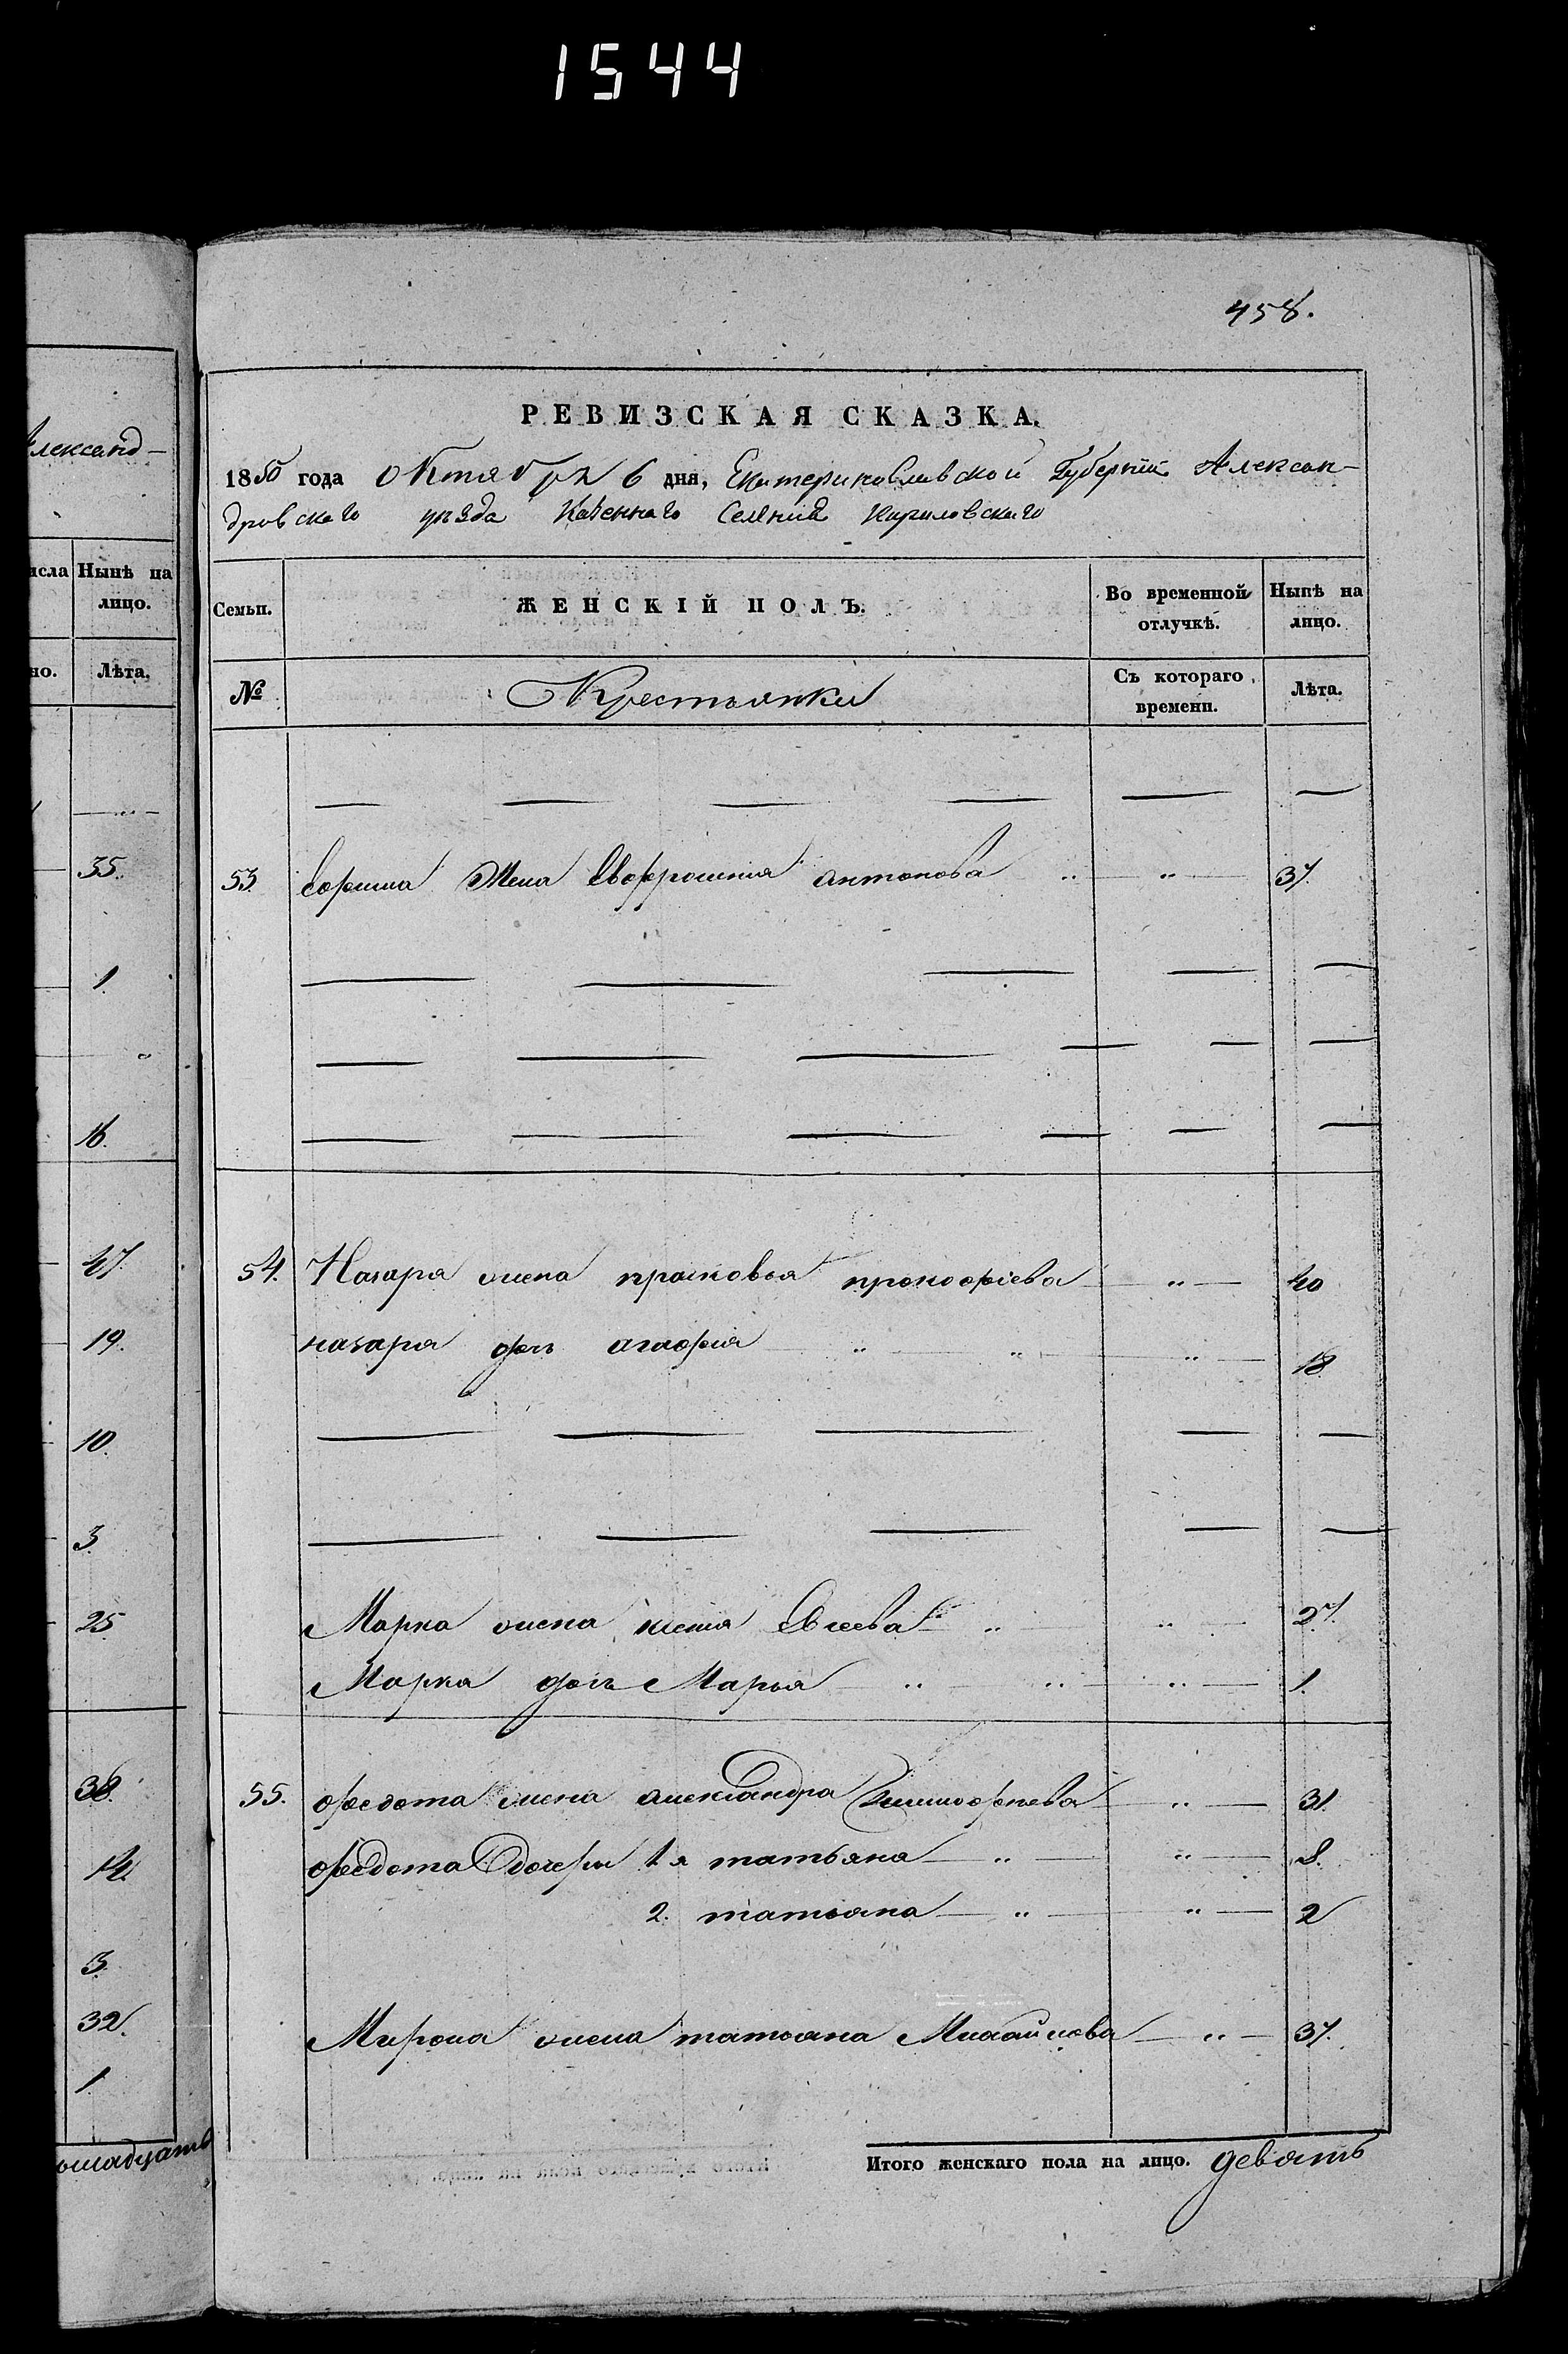 1544
Александ–
исла Нынѣ на
лицо.
но. Лѣта.
35.
1
16.
47.
19.
10.
3
25
38.
14.
3
32.
1
458.
РЕВИЗСКАЯ СКАЗКА.
1850 года октября 6 дня, Екатеринославской Губернiи Алексан–
дровскаго уѣзда Казеннаго Селенiя Кириловскаго
Семьи. ЖЕНСКIЙ ПОЛЪ. Во временной отлучкѣ. Нынѣ на лицо.
№ Крестьянки Съ котораго времени. Лѣта.
53. Жена Евфросинiя антонова 37.
54. Назара жена прасковья прокофiева 40
назара дочь агафiя 18
Марка жена Евсеева 27.
Марка дочь Марья 1.
55. федота жена александра Тимофѣева 31.
федота дочери 1я татьяна 8.
2. татьяна 2
Мирона жена татьяна Михайлова 37.
Итого женскаго пола на лицо. девять